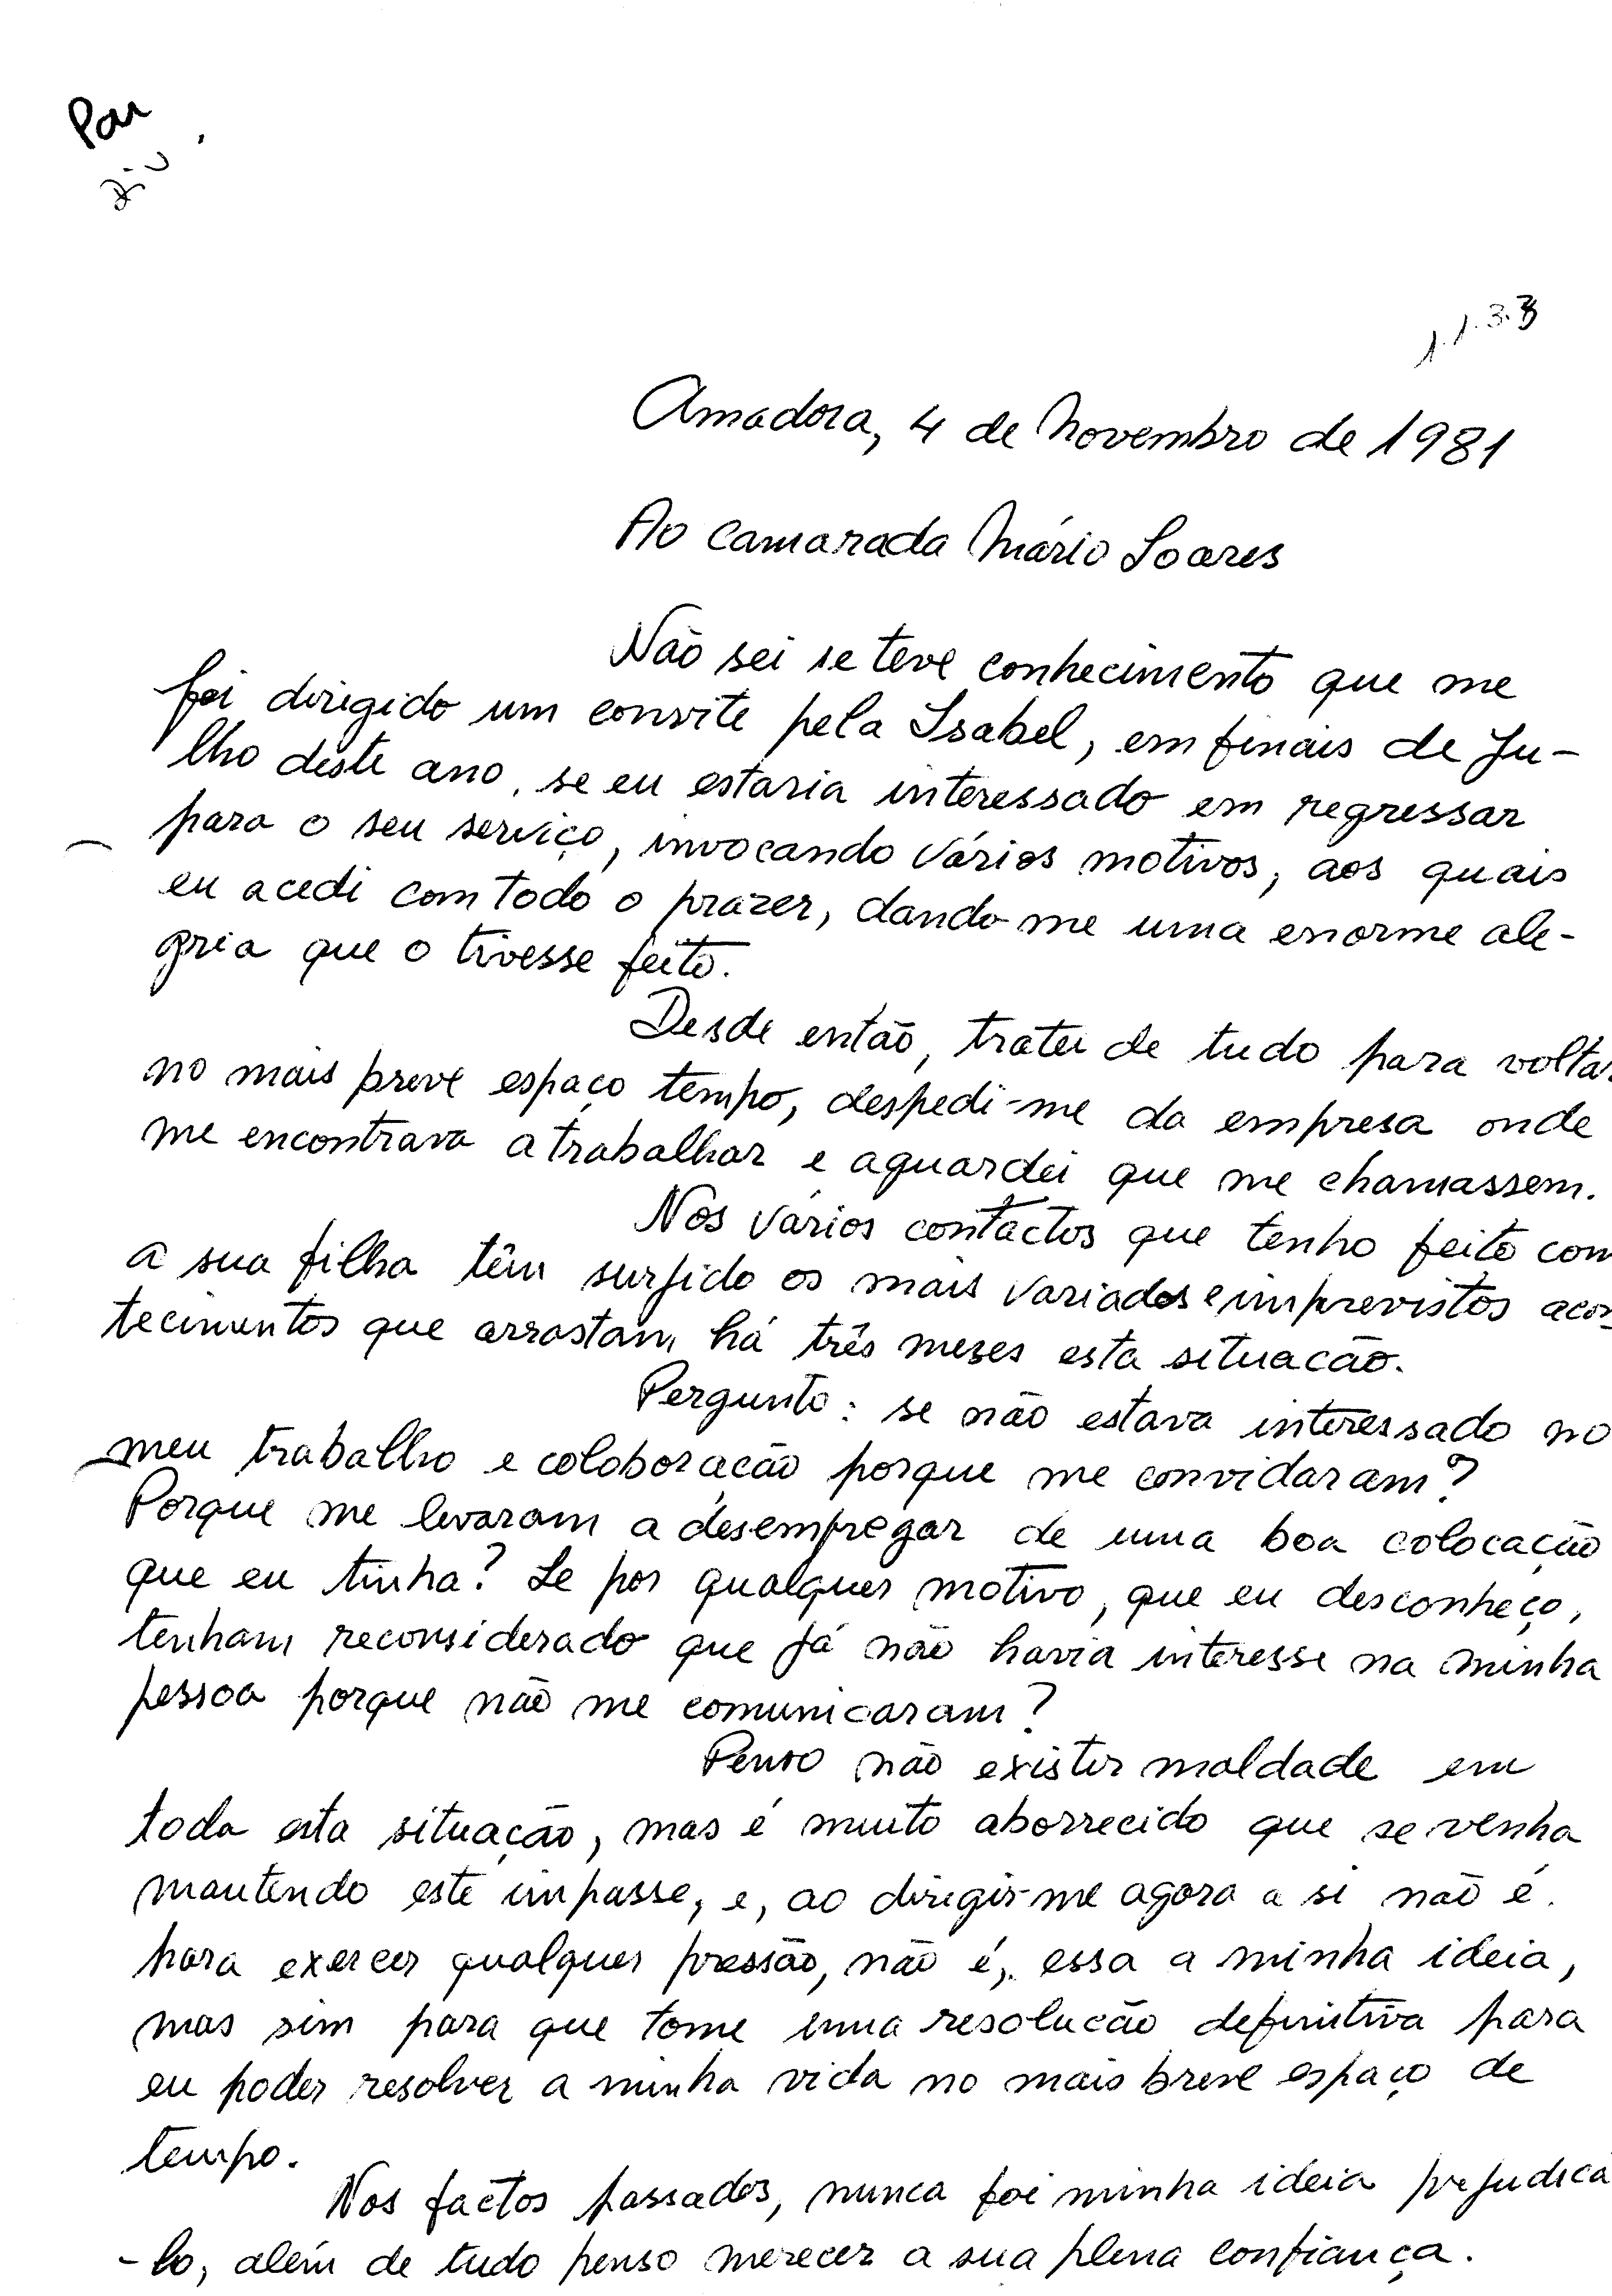 1.1.3.3
Amadora, 4 de Novembro de 1981
Ao camarada Mário Soares
Não sei se teve conhecimento que me
foi dirigido um convite pela Isabel, em finais de Ju-
lho deste ano, se eu estaria interessado em regressar
para o seu serviço, invocando vários motivos, aos quais
eu acedi com todo o prazer, dando-me uma enorme ale-
gria que o tivesse feito.
Desde então, tratei de tudo para volta
no mais breve espaço tempo, despedi-me da empresa onde
me encontrava a trabalhar e aguardei que me chamassem.
Nos vários contactos que tenho feito com
a sua filha têm surgido os mais variados e imprevistos acon
tecimentos que arrastam há três meses esta situacão.
Pergunto: se não estava interessado no
meu trabalho e coloboração porque me convidaram?
Porque me levaram a desempregar de uma boa colocação
que eu tinha? Se por qualquer motivo, que eu desconheço,
tenham reconsiderado que já não havia interesse na minha
pessoa porque não me comunicaram?
Penso não existir maldade em
toda esta situação, mas é muito aborrecido que se venha
mantendo este impasse, e, ao dirigir-me agora a si não é
para exercer qualquer pressão, não é, essa a minha ideia,
mas sim para que tome uma resolucão definitiva para
eu poder resolver a minha vida no mais breve espaço de
tempo.
Nos factos passados, nunca foi minha ideia prejudicá
-lo, além de tudo penso merecer a sua plena confiança.